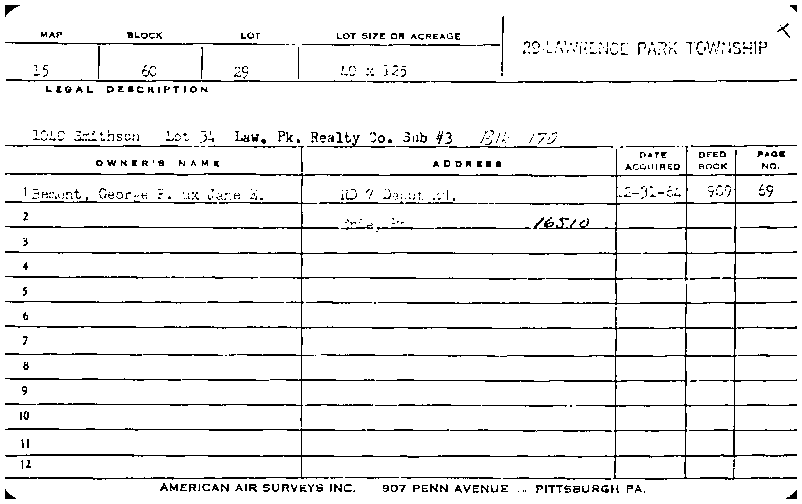 MAP BLOCK LOT LOT SIZE OR ACREAGE
29-LAWRENCE PARK TOWNSHIP X
15 60 29 40 x 125
LEGAL DESCRIPTION
Smithson Lot 34 Law. Pk. Realty Co. Sub #3 170
OWNER'S NAME ADDRESS DATE ACQUIRED DEED BOOK PAGE NO.
1 Bemont, George F. ux Jane E. RD 7 Depot Rd. 12-31-64 909 69
2 Erie, Pa. 16510
3
4
5
6
7
8
9
10
11
12
AMERICAN AIR SURVEYS INC. 907 PENN AVENUE ... PITTSBURGH PA.